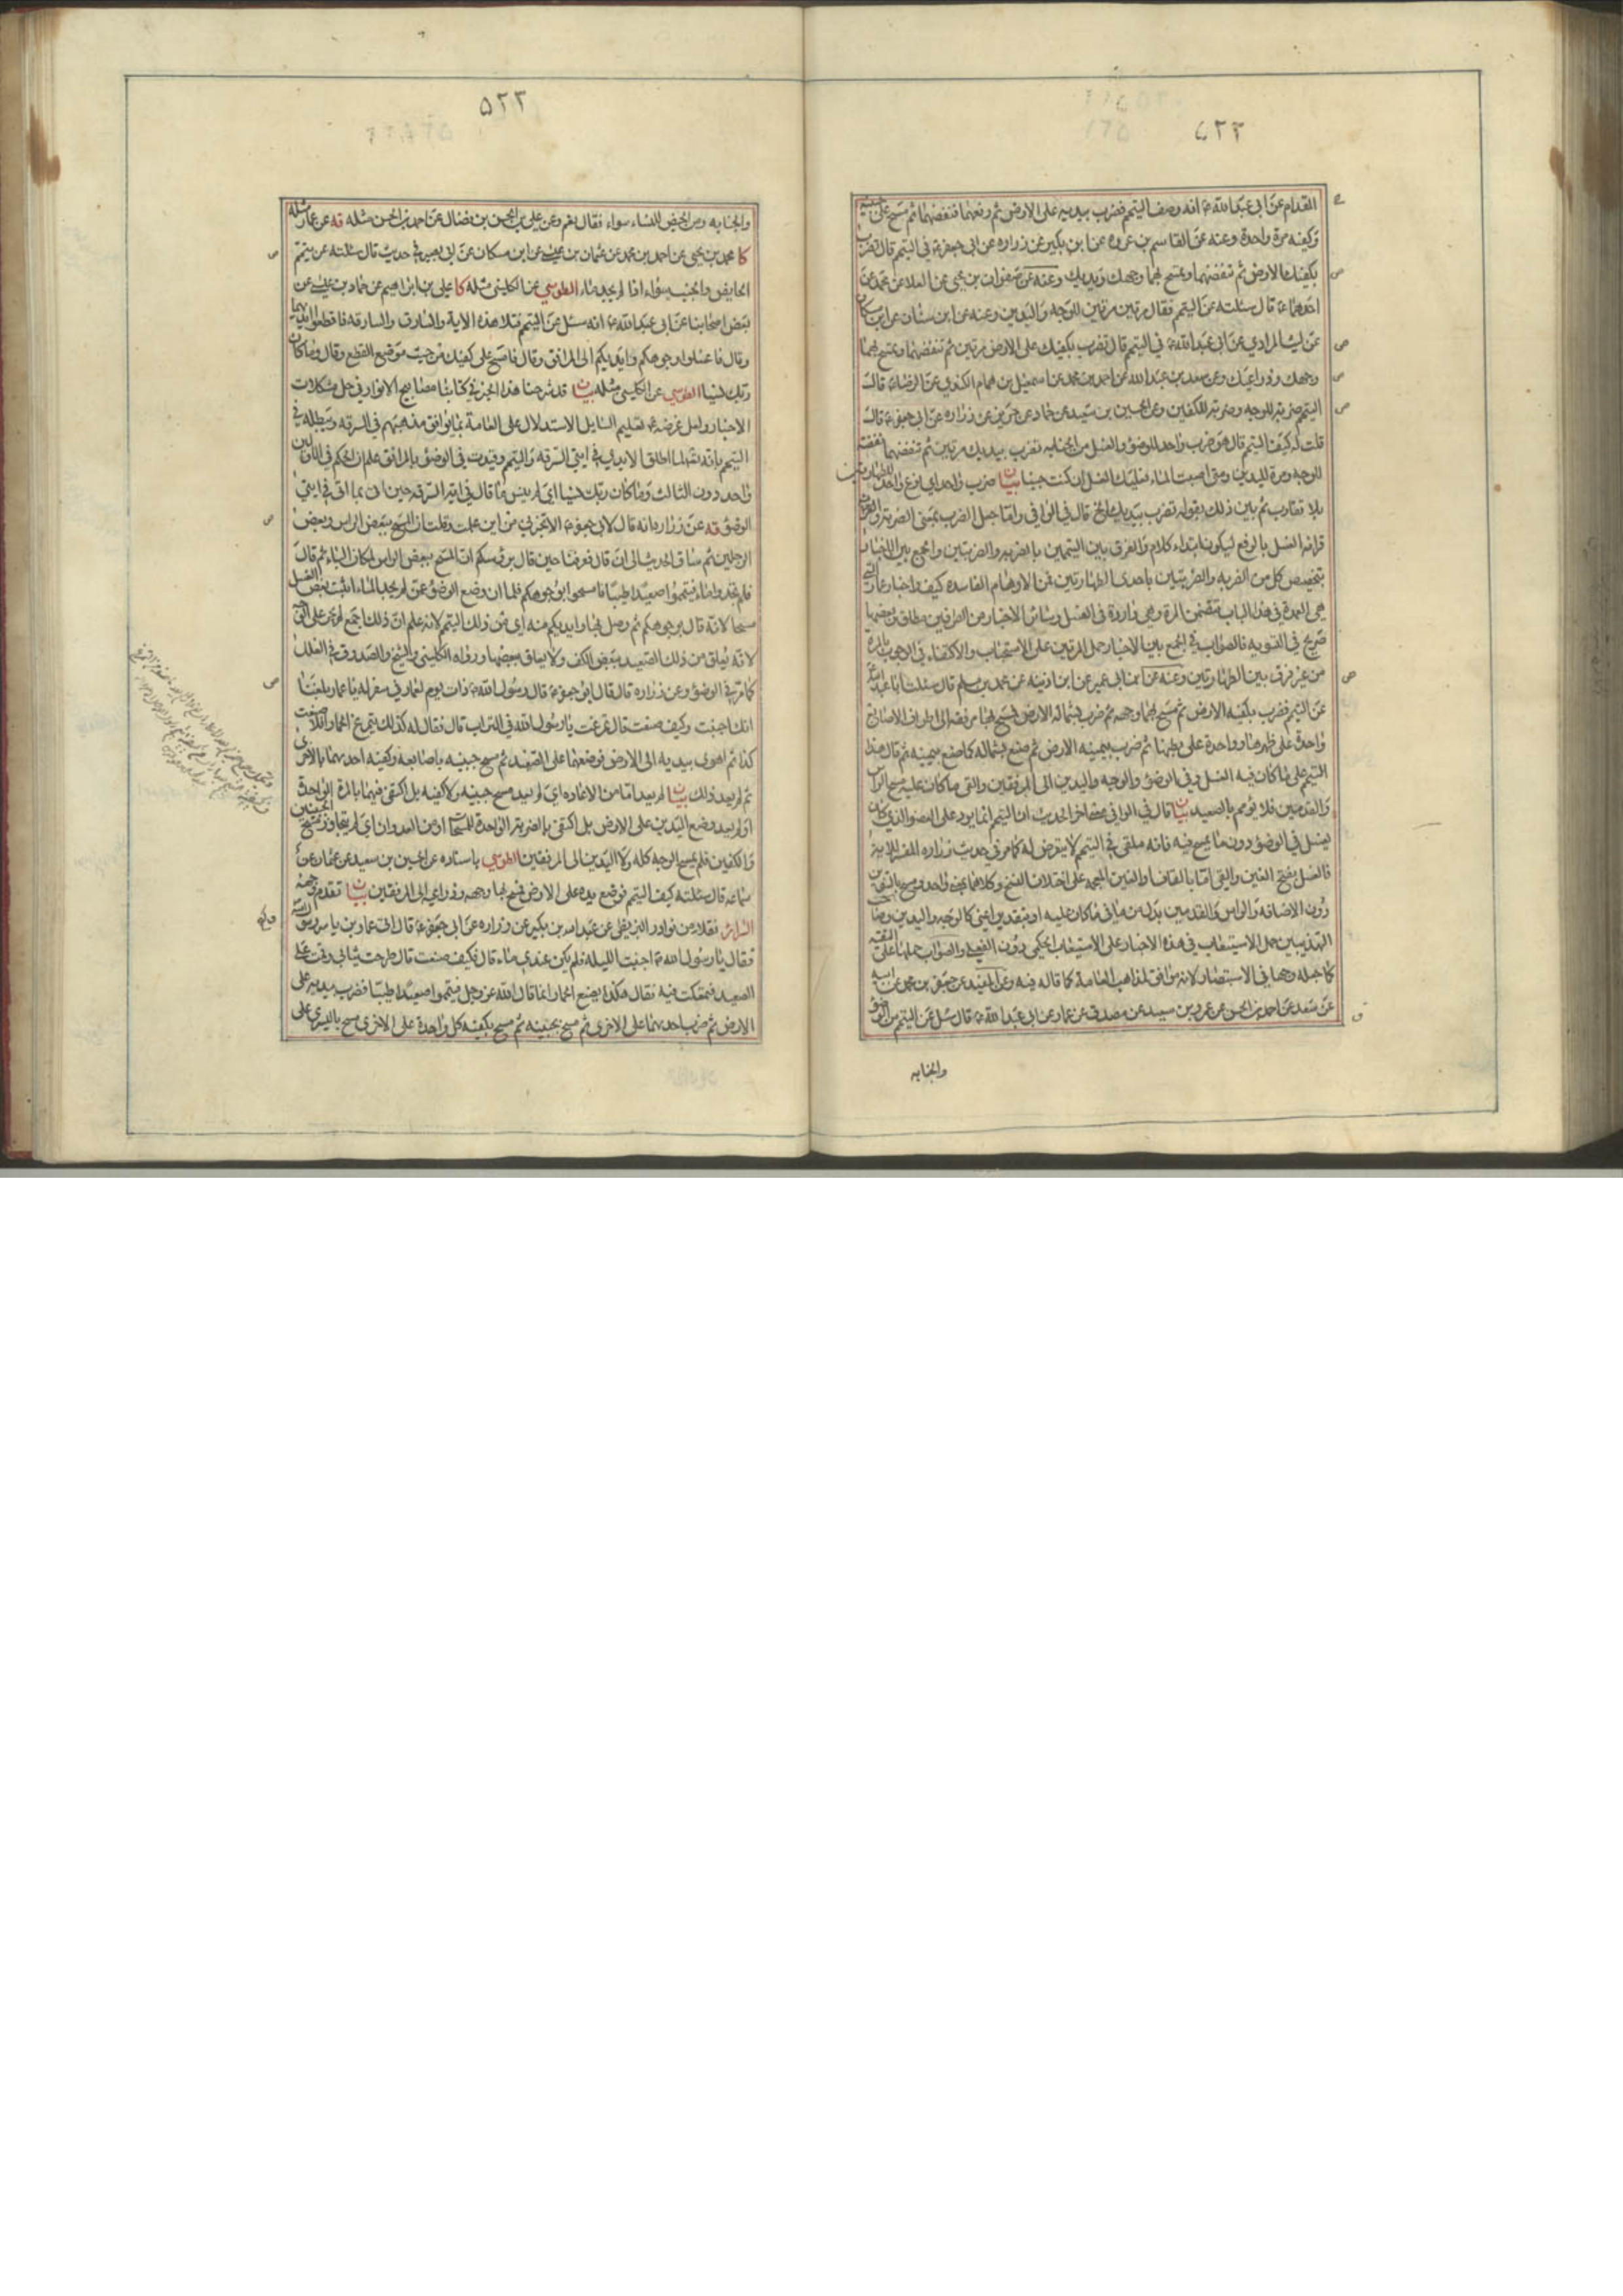 القدام عن ابى عبد الله ع انه وصف التيمم فضرب بيديه على الارض ثم رفعهما فنفضهما ثم مسح على جبينيه
وكفيه مرة واحدة وعنه عن القاسم بن عروه عن ابن بكير عن زراره عن ابى جعفر ع فى التيمم قال تضرب
بكفيك الارض ثم تنفضهما وتمسح بهما وجهك ويديك وعنه عن صفوان بن يحيى عن العلا عن محمد عن
احدهما ع قال سئلته عن التيمم فقال مرتين مرتين للوجه واليدين وعنه عن ابن سنان عن ابن مسكان
عن ليث المرادي عن ابى عبد الله ع في التيمم قال تضرب بكفيك على الارض مرتين ثم تنفضهما وتمسح بهما
وجهك وذراعيك وعن سعد بن عبد الله عن احمد بن محمد عن اسمعيل بن همام الكندي عن الرضا ع قال
التيمم ضربة للوجه وضربة للكفين وعن الحسين بن سعيد عن حماد عن حريز عن زراره عن ابى جعفر ع قال
قلت له كيف التيمم قال هو ضرب واحد للوضوء والغسل من الجنابه تضرب بيديك مرتين ثم تنفضهما نفضة
للوجه ومرة لليدين ومتى اصبت الماء فعليك الغسل ان كنت جنبا بيان ضرب واحد اى نوع واحد للطهارتين
بلا تفاوت ثم بين ذلك بقوله تضرب بيديك الخ قال فى الوافى واما جعل الضرب بمعنى الضربة
قرائة الغسل بالرفع ليكون ابتداء كلام والفرق بين التيممين بالضربة والضربتين والجمع بين الاخبار
بتخصيص كل من الضربه والضربتين باحدى الطهارتين فمن الاوهام الفاسده كيف واخبار عمار التى
هى العمدة فى هذا الباب تتضمن المرة وهى واردة فى الغسل وسائر الاخبار من الطرفين مطلق وبعضها
صريح فى التسويه فالصواب فى الجمع بين الاخبار حمل المرتين على الاستحباب والاكتفاء فى الوجوب بالمرة
من غير فرق بين الطهارتين وعنه عن ابن ابى عمير عن ابن اذينه عن محمد بن مسلم قال سئلت ابا عبد الله
عن التيمم فضرب بكفيه الارض ثم مسح بهما وجهه ثم ضرب بشماله الارض فمسح بها مرفقه الى اطراف الاصابع
واحدة على ظهرها وواحدة على بطنها ثم ضرب بيمينه الارض ثم صنع بشماله كما صنع بيمينه ثم قال هذا
التيمم على ما كان فيه الغسل فى الوضوء والوجه واليدين الى المرفقين والقى ما كان عليه مسح الراس
والقدمين فلا يؤمم بالصعيد بيان قال فى الوافى معنى اخر الحديث ان التيمم انما يود على العضو الذى كان
يغسل فى الوضوء دون ما يمسح فيه فانه ملقى فى التيمم لا يتعرض له كما مر فى حديث زراره المفسر للاية
فالغسل بفتح الغين والقى اما بالقاف او الغين المعجمه على اختلاف النسخ وكلاهما بمعنى واحد
دون الاضافه والراس والقدمين بدل من ما فى ما كان عليه او بتقدير اعنى كالوجه واليدين
التهذيبين حمل الاستيعاب فى هذه الاخبار على الاستيعاب الحكمى دون الفعلى والصواب حملها على التقية
كما حمله وجها فى الاستبصار لانه موافق لمذاهب العامة كما قاله فيه وعن المفيد عن جعفر بن محمد عن ابيه
عن سعد عن احمد بن الحسن عن عمرو بن سعيد عن مصدق عن عمار عن ابى عبد الله ع قال سئل عن التيمم من الوضوء
والجنابه
٥٢٢
والجنابه ومن الحيض للنساء سواء فقال نعم وعن على بن الحسن بن فضال عن احمد بن الحسن مثله قه عن عمار مثله
كا محمد بن يحيى عن احمد بن محمد عن عثمان بن عيسى عن ابن مسكان عن ابى بصير فى حديث قال سئلته عن تيمم
الحايض والجنب سواء اذا لم يجد ماء الطوسي عن الكلينى مثله كا على بن ابراهيم عن حماد بن عيسى عن
بعض اصحابنا عن ابى عبد الله ع انه سئل عن التيمم فتلا هذه الاية والسارق والسارقه فاقطعوا ايديهما
وقال فاغسلوا وجوهكم وايديكم الى المرافق وقال فامسح على كفيك من حيث موضع القطع وقال وما كان
ربك نسيا الطوسي عن الكلينى مثله بيان قد شرحنا هذا الخبر فى كتابنا مصابيح الانوار فى حل مشكلات
الاخبار ولعل غرضه ع تعليم السايل الاستدلال على العامة بما يوافق مذهبهم فى السرقه ويبطله فى
التيمم بانه تعالى لما اطلق الايدى فى ايتى السرقه والتيمم وقيدت فى الوضوء بالمرافق علم ان الحكم فى الاولين
واحد دون الثالث وما كان ربك نسيا اى لم ينس ما قال فى اية السرقه حين اتى بما اتى فى ايتى
الوضوء قه عن زراره انه قال لابى جعفر ع الا تخبرنى من اين علمت وقلت ان المسح ببعض الراس وبعض
الرجلين ثم ساق الحديث الى ان قال فعرفنا حين قال برؤسكم ان المسح ببعض الراس لمكان الباء ثم قال
فلم تجدوا ماء فتيمموا صعيدا طيبا فامسحوا بوجوهكم فلما ان وضع الوضوء عمن لم يجد الماء اثبت بعض الغسل
مسحا لانه قال بوجوهكم ثم وصل بها وايديكم منه اى من ذلك التيمم لانه علم ان ذلك اجمع لم يجر على الوجه
لانه يعلق من ذلك الصعيد ببعض الكف ولا يعلق ببعضها ورواه الكلينى والشيخ والصدوق فى العلل
كما مر فى الوضوء وعن زراره قال قال ابو جعفر ع قال رسول الله ص ذات يوم لعمار فى سفر له يا عمار بلغنا
انك اجنبت وكيف صنعت قال تمرغت يا رسول الله فى التراب قال فقال له كذلك يتمرغ الحمار افلا صنعت
كذا ثم اهوى بيديه الى الارض فوضعهما على الصعيد ثم مسح جبينيه باصابعه وكفيه احديهما بالاخرى
ثم لم يعد ذلك بيان لم يعد اما من الاعاده اى لم يعد مسح جبينيه ولا كفيه بل اكتفى فيهما بالمرة الواحدة
او لم يعد وضع اليدين على الارض بل اكتفى بالضربة الواحدة للمسحات او من العدوان اى لم يتجاوز مسح الجبينين
والكفين فلم يمسح الوجه كله ولا اليدين الى المرفقين الطوسي باسناده عن الحسين بن سعيد عن عثمان عن
سماعه قال سئلته كيف التيمم فوضع يده على الارض فمسح بها وجهه وذراعيه الى المرفقين بيان تقدم وجهه
السرائر نقلا من نوادر البزنطى عن عبد الله بن بكير عن زراره عن ابى جعفر ع قال اتى عمار بن ياسر رسول الله
فقال يا رسول الله ص اجنبت الليله فلم يكن عندى ماء قال فكيف صنعت قال طرحت ثيابى وقمت على
الصعيد فتمعكت فيه فقال هكذا يصنع الحمار انما قال الله عز وجل فتيمموا صعيدا طيبا فضرب بيديه على
الارض ثم ضرب احديهما على الاخرى ثم مسح بجبينيه ثم مسح بكفيه كل واحدة على الاخرى مسح باليسرى على